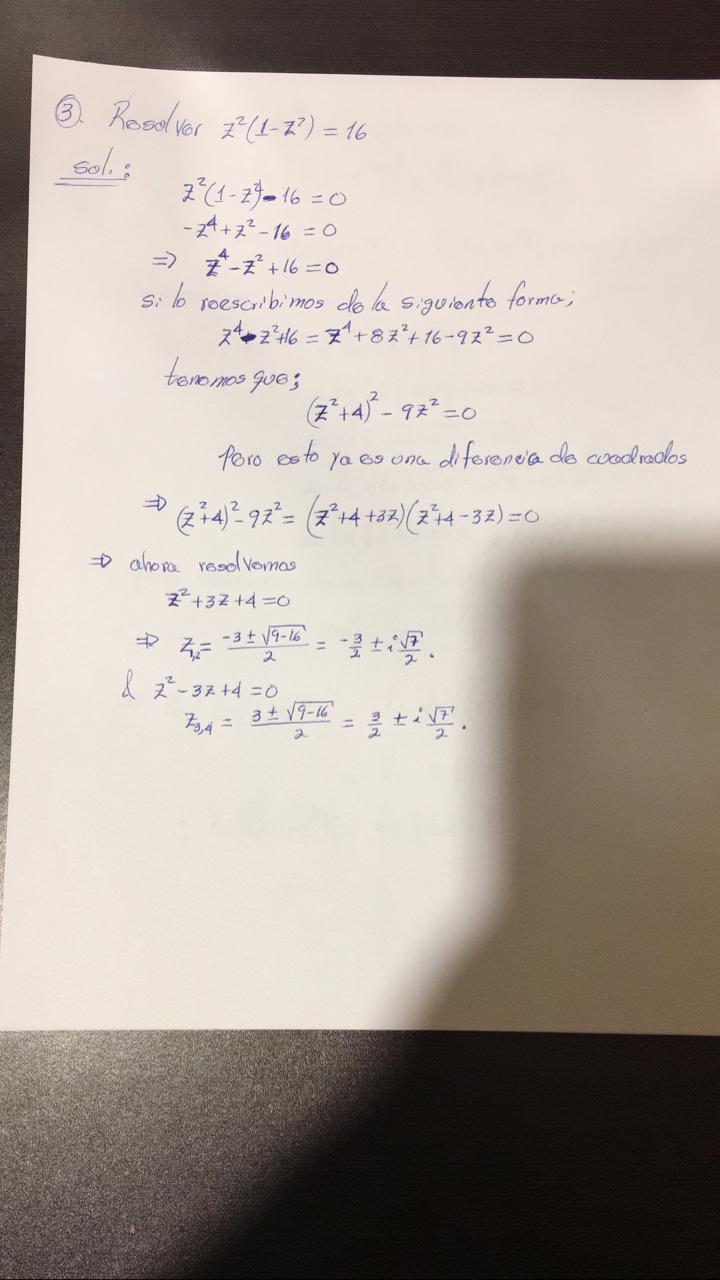 ③. Resolver z²(1-z²) = 16
sol.:
z²(1-z²)-16 = 0
-z⁴+z²-16 = 0
⇒ z⁴-z²+16 = 0
si lo reescribimos de la siguiente forma;
z⁴-z²+16 = z⁴+8z²+16-9z² = 0
tenemos que;
(z²+4)² - 9z² = 0
Pero esto ya es una diferencia de cuadrados
⇒ (z²+4)²-9z² = (z²+4+3z)(z²+4-3z) = 0
⇒ ahora resolvemos
z²+3z+4 = 0
⇒ z₁,₂ = (-3±√(9-16))/2 = -3/2 ± i√7/2.
& z²-3z+4 = 0
z₃,₄ = (3±√(9-16))/2 = 3/2 ± i√7/2.